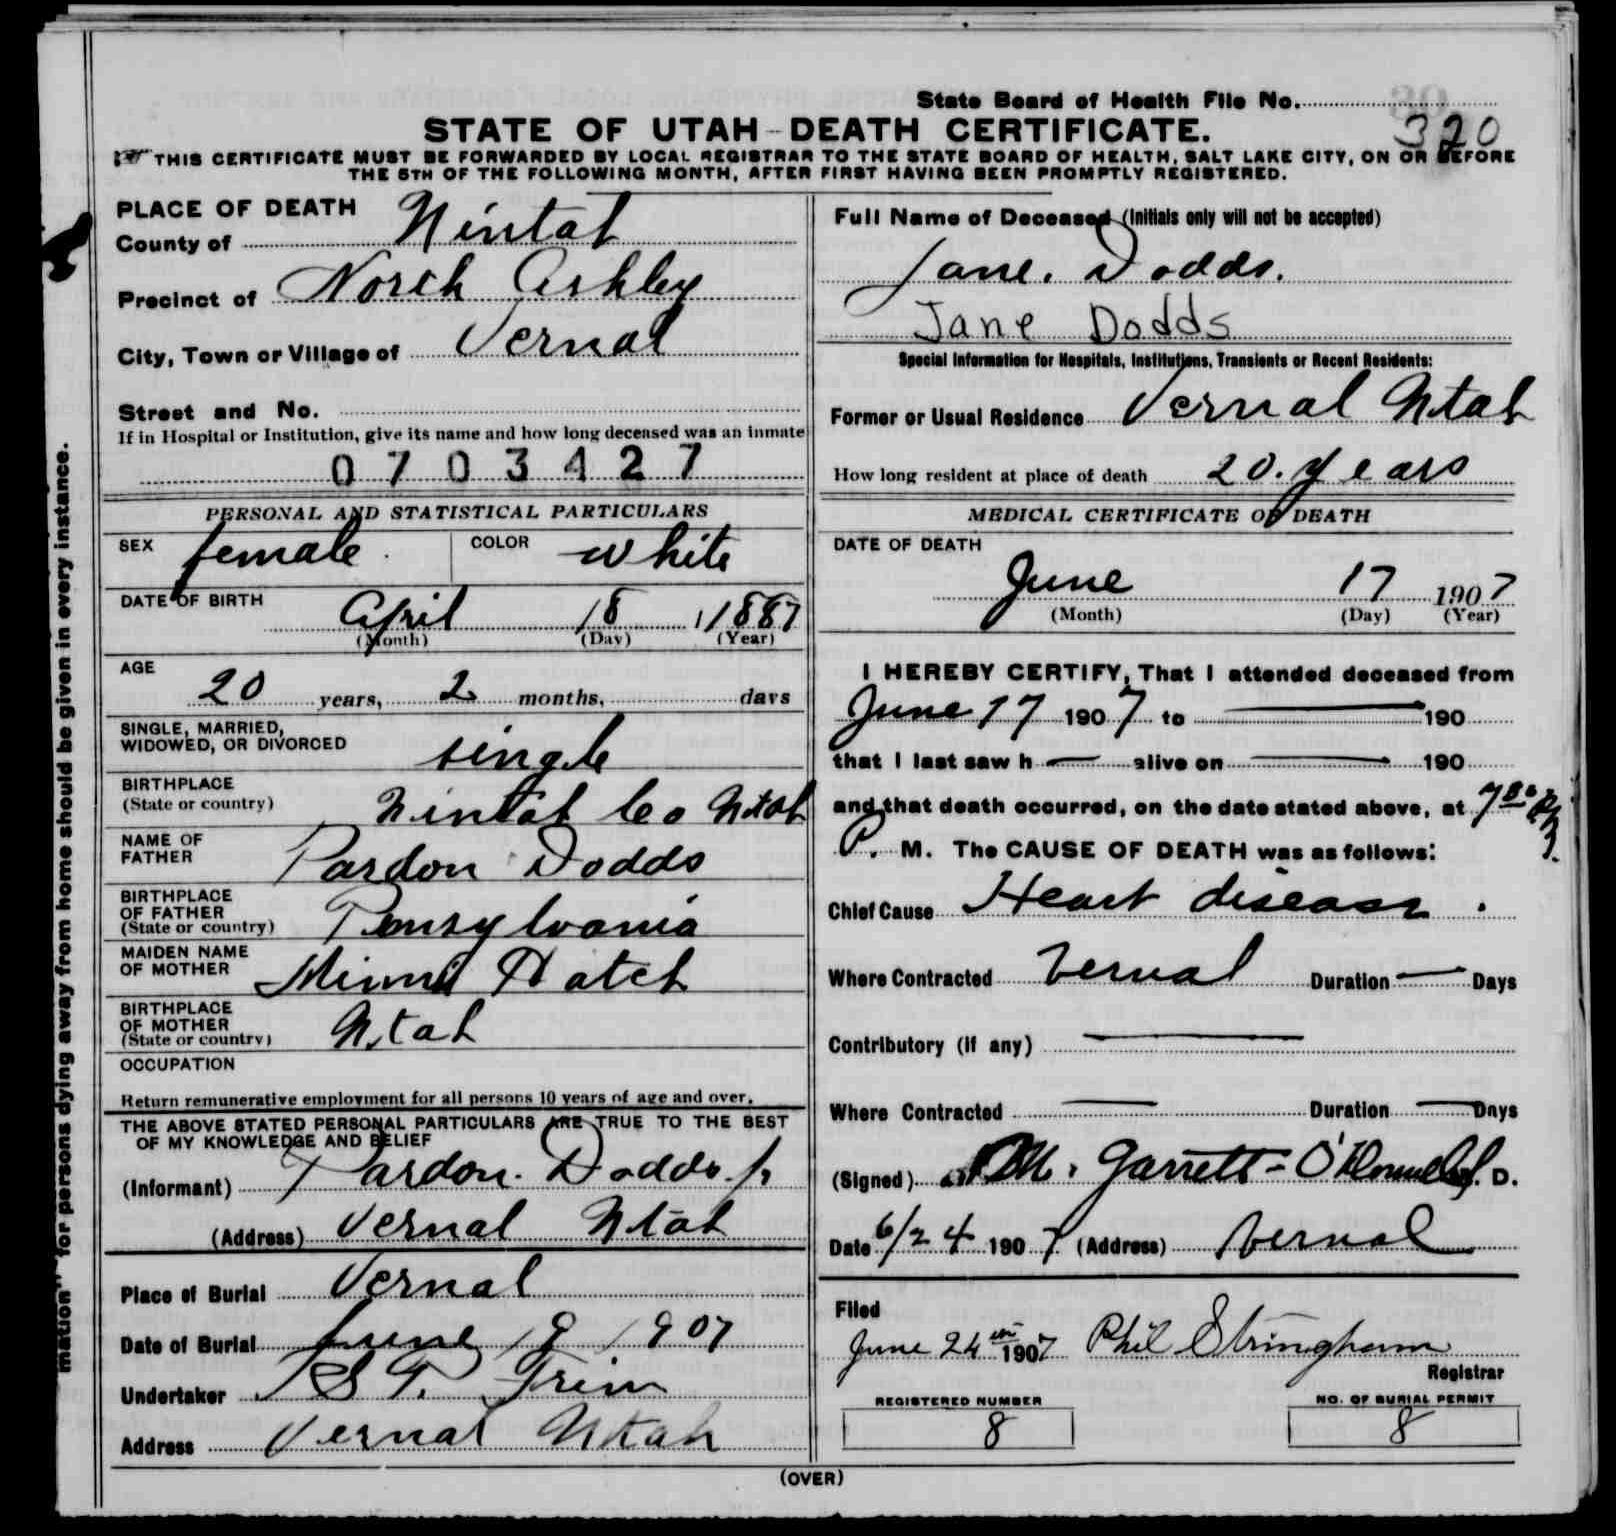 State Board of Health File No.
320
STATE OF UTAH - DEATH CERTIFICATE.
THIS CERTIFICATE MUST BE FORWARDED BY LOCAL REGISTRAR TO THE STATE BOARD OF HEALTH, SALT LAKE CITY, ON OR BEFORE
THE 5TH OF THE FOLLOWING MONTH, AFTER FIRST HAVING BEEN PROMPTLY REGISTERED.
PLACE OF DEATH
County of Uintah
Precinct of North Ashley
City, Town or Village of Vernal
Street and No.
If in Hospital or Institution, give its name and how long deceased was an inmate
0703427
Full Name of Deceased (Initials only will not be accepted)
Jane. Dodds.
Jane Dodds
Special Information for Hospitals, Institutions, Transients or Recent Residents:
Former or Usual Residence Vernal Utah
How long resident at place of death 20. years
PERSONAL AND STATISTICAL PARTICULARS
SEX female. COLOR white
DATE OF BIRTH
April 18 1887
(Month) (Day) (Year)
AGE
20 years, 2 months, days
SINGLE, MARRIED,
WIDOWED, OR DIVORCED single
BIRTHPLACE
(State or country) Uintah Co Utah
NAME OF
FATHER Pardon Dodds
BIRTHPLACE
OF FATHER
(State or country) Pensylvania
MAIDEN NAME
OF MOTHER Hatch
BIRTHPLACE
OF MOTHER
(State or country) Utah
OCCUPATION
Return remunerative employment for all persons 10 years of age and over.
THE ABOVE STATED PERSONAL PARTICULARS ARE TRUE TO THE BEST
OF MY KNOWLEDGE AND BELIEF
(Informant) Pardon. Dodds Jr
(Address) Vernal Utah
Place of Burial Vernal
Date of Burial June 19 1907
Undertaker Trim
Address Vernal Utah
MEDICAL CERTIFICATE OF DEATH
DATE OF DEATH
June 17 1907
(Month) (Day) (Year)
I HEREBY CERTIFY, That I attended deceased from
June 17 1907 to 190
that I last saw h alive on 190
and that death occurred, on the date stated above, at 7
P. M. The CAUSE OF DEATH was as follows:
Chief Cause Heart disease.
Where Contracted Vernal Duration Days
Contributory (if any)
Where Contracted Duration Days
(Signed) Garrett - D.
Date 6/24 1907 (Address) Vernal
Filed
June 24th 1907 Phil Stringham
Registrar
REGISTERED NUMBER
8
NO. OF BURIAL PERMIT
8
(OVER)
mation" for persons dying away from home should be given in every instance.